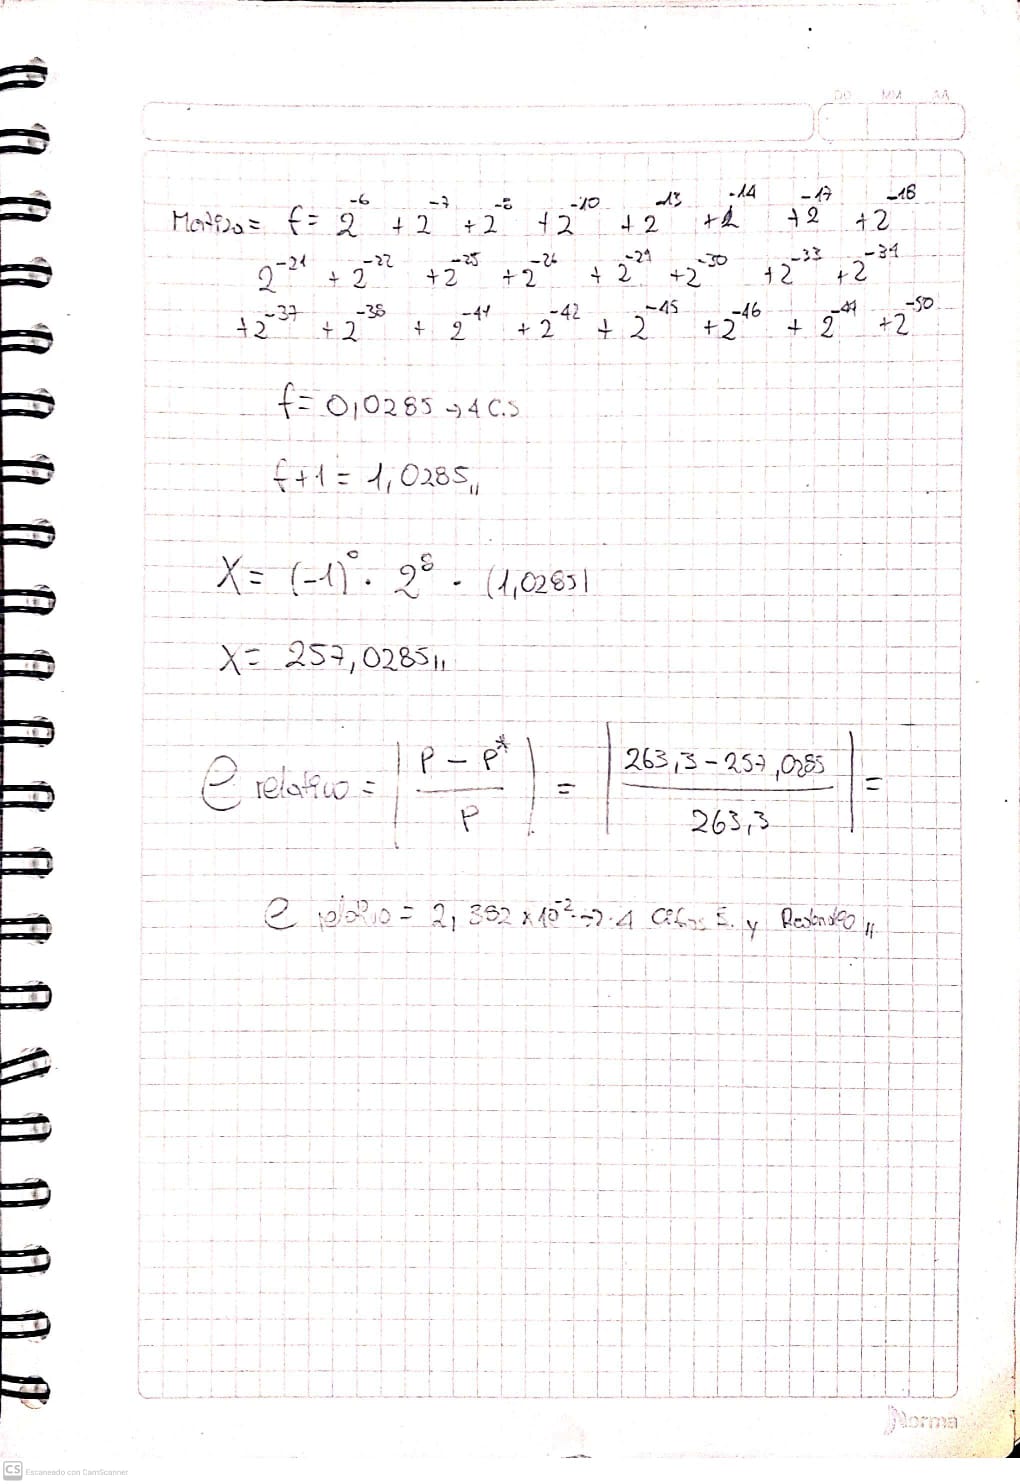 DD MM AA
Mantisa = f = 2^-6 + 2^-7 + 2^-8 + 2^-10 + 2^-13 + 2^-14 + 2^-17 + 2^-18
2^-21 + 2^-22 + 2^-25 + 2^-26 + 2^-29 + 2^-30 + 2^-33 + 2^-34
+ 2^-37 + 2^-38 + 2^-41 + 2^-42 + 2^-45 + 2^-46 + 2^-49 + 2^-50
f = 0,0285 → 4 C.S
f + 1 = 1,0285,,
X = (-1)^0 · 2^8 · (1,0285)
X = 257,0285,,
e relativo = | P - P* / P | = | 263,3 - 257,0285 / 263,3 | =
e relativo = 2,382 x 10^-2 → 4 Cifras S. y Redondeo,,
Norma
CS Escaneado con CamScanner